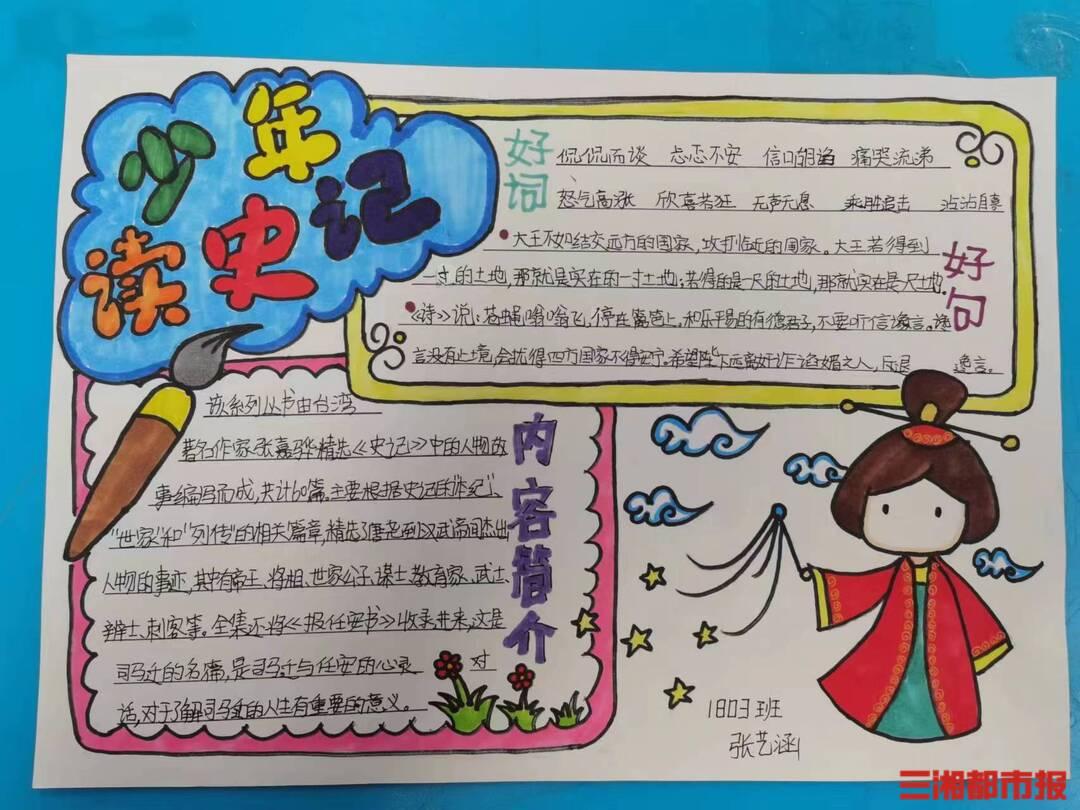 少年
读史记
好词
侃侃而谈 忐忑不安 信口胡诌 痛哭流涕
怒气高涨 欣喜若狂 无声无息 乘胜追击 沾沾自喜
好句
大王不如结交远方的国家,攻打临近的国家。大王若得到
一寸的土地,那就是实在的一寸土地;若得的是一尺的土地,那就实在是一尺土地。
《诗》说:苍蝇嗡嗡飞,停在篱笆上。和乐平易的有德君子,不要听信谗言。谗
言没有止境,会扰得四方国家不得安宁。希望陛下远离奸诈谄媚之人,斥退 谗言。
内容简介
该系列丛书由台湾
著名作家张嘉骅精选《史记》中的人物故
事编写而成,共计60篇,主要根据史记的“本纪”、
“世家”和“列传”的相关篇章,精选了唐尧到汉武帝间杰出
人物的事迹,其中有帝王、将相、世家公子、谋士、教育家、武士、
辩士、刺客等。全集还将《报任安书》收录进来,这是
司马迁的名篇,是司马迁与任安的心录 对
话,对于了解司马迁的人生有重要的意义。
1803班
张艺涵
三湘都市报